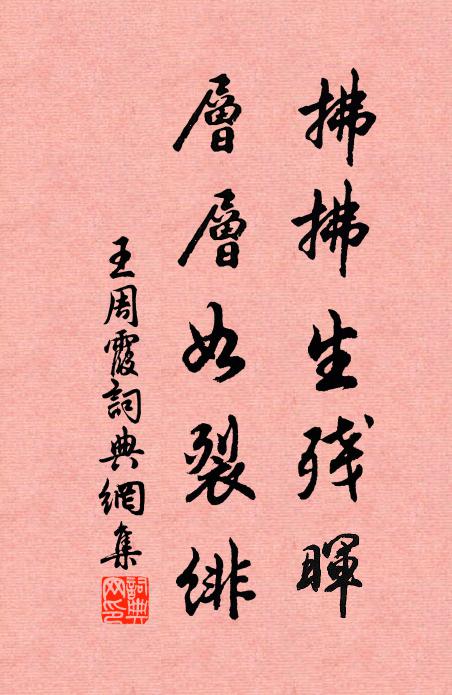 拂拂生残暉
層層如裂緋
王周霞詞典網集
詞典网印